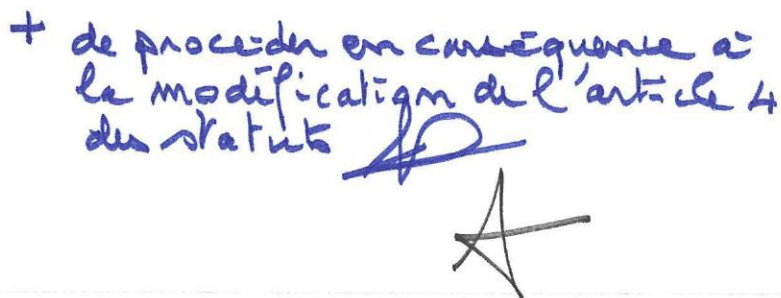 + de procéder en conséquence à
la modification de l'article 4
des statuts